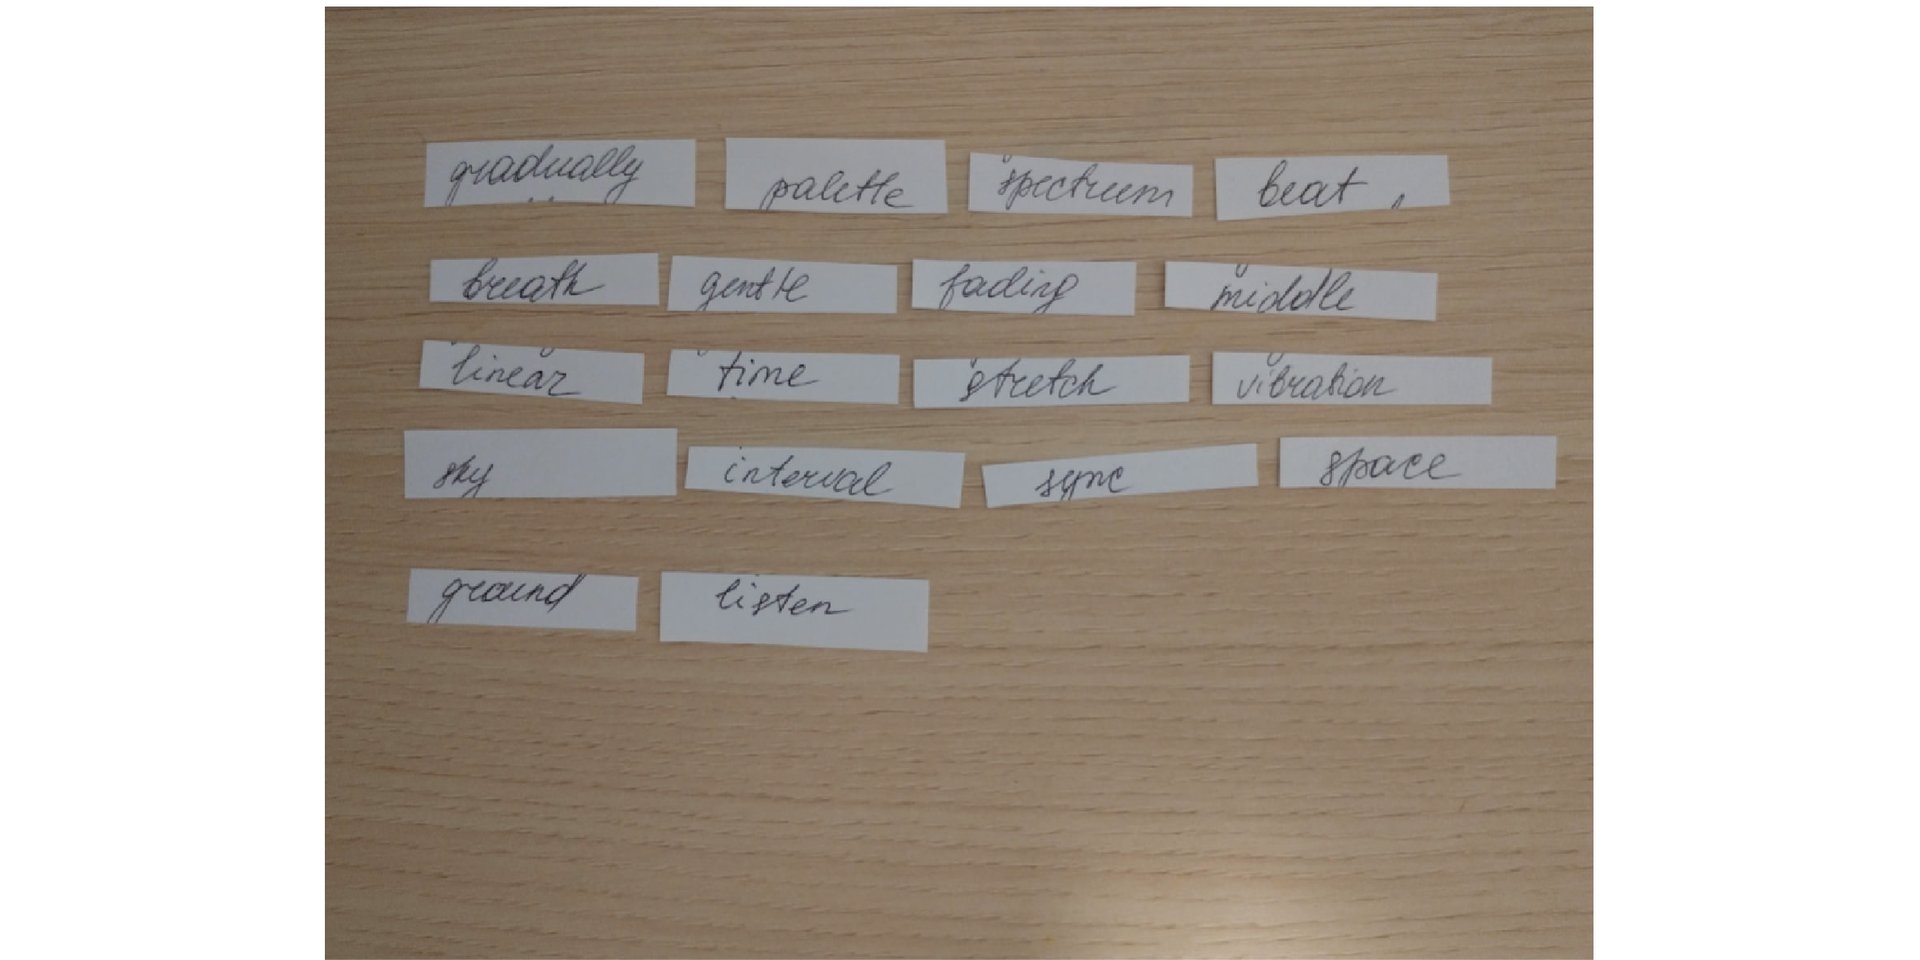 gradually palette spectrum beat
breath gentle fading middle
linear time stretch vibration
sky interval sync space
ground listen